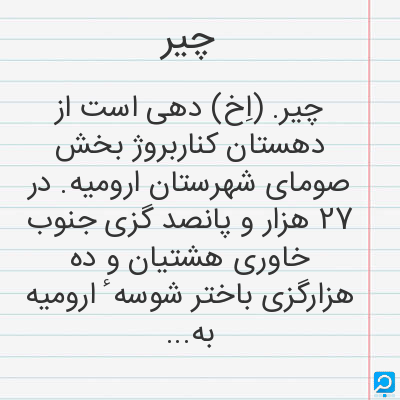 چیر
چیر. (اِخ) دهی است از
دهستان کناربروژ بخش
صومای شهرستان ارومیه. در
۲۷ هزار و پانصد گزی جنوب
خاوری هشتیان و ده
هزارگزی باختر شوسه ٔ ارومیه
به...